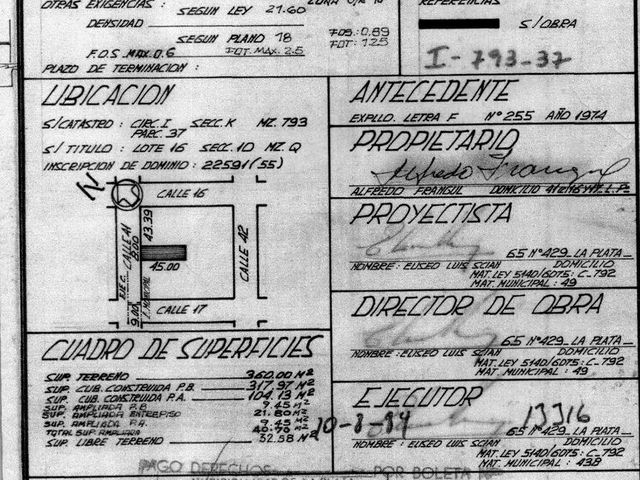 OTRAS EXIGENCIAS : SEGUN LEY 21.60
DENSIDAD
SEGUN PLANO 18
F.O.S. MAX. 0.6 FOT. MAX. 2.5
FOS: 0.89
FOT: 1.25
PLAZO DE TERMINACION :
REFERENCIAS
S/OBRA
I-793-37
UBICACION
S/CATASTRO : CIRC. I SECC. K MZ. 793
PARC. 37
S/ TITULO : LOTE 16 SECC. 1D MZ. Q
INSCRIPCION DE DOMINIO : 22591 (55)
N
CALLE 16
CALLE 41
43.39
8.00
45.00
CALLE 42
9.00
CALLE 17
CUADRO DE SUPERFICIES
SUP. TERRENO 360.00 M²
SUP. CUB. CONSTRUIDA P.B. 317.97 M²
SUP. CUB. CONSTRUIDA P.A. 104.13 M²
SUP. AMPLIADA P.B. 9.45 M²
SUP. AMPLIADA ENTREPISO 21.80 M²
SUP. AMPLIADA P.A.
TOTAL SUP. AMPLIADA
SUP. LIBRE TERRENO 32.58 M²
ANTECEDENTE
EXPLLO. LETRA F Nº 255 AÑO 1974
PROPIETARIO
Alfredo Frangul
ALFREDO FRANGUL DOMICILIO
PROYECTISTA
65 Nº 429_LA PLATA
NOMBRE : ELISEO LUIS SCIAN DOMICILIO
MAT. LEY 5140/6075: C_792
MAT. MUNICIPAL : 49
DIRECTOR DE OBRA
65 Nº 429_LA PLATA
NOMBRE: ELISEO LUIS SCIAN DOMICILIO
MAT. LEY 5140/6075: C_792
MAT. MUNICIPAL : 49
EJECUTOR
10-8-84
13316
65 Nº 429_LA PLATA
NOMBRE : ELISEO LUIS SCIAN DOMICILIO
MAT. LEY 5140/6075: C_792
MAT. MUNICIPAL : 43B
PAGO DERECHOS POR BOLETA